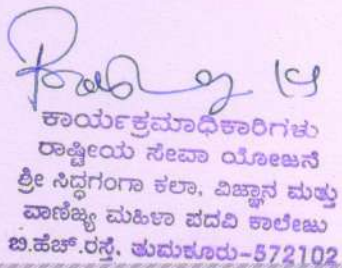 ಕಾರ್ಯಕ್ರಮಾಧಿಕಾರಿಗಳು
ರಾಷ್ಟ್ರೀಯ ಸೇವಾ ಯೋಜನೆ
ಶ್ರೀ ಸಿದ್ಧಗಂಗಾ ಕಲಾ, ವಿಜ್ಞಾನ ಮತ್ತು
ವಾಣಿಜ್ಯ ಮಹಿಳಾ ಪದವಿ ಕಾಲೇಜು
ಬಿ.ಹೆಚ್.ರಸ್ತೆ, ತುಮಕೂರು-572102